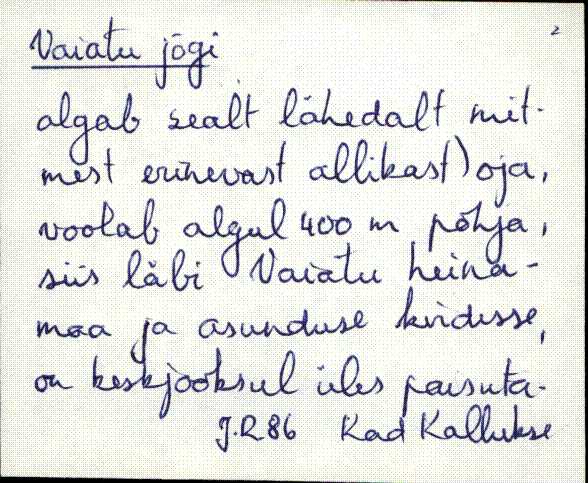 2
Vaiatu jõgi
algab sealt lähedalt mit-
mest erinevast allikast) oja,
voolab algul 400 m põhja,
siis läbi Vaiatu heina-
maa ja asunduse kirdesse,
on keskjooksul üles paisuta-
J.R. 86 Kad Kallukse